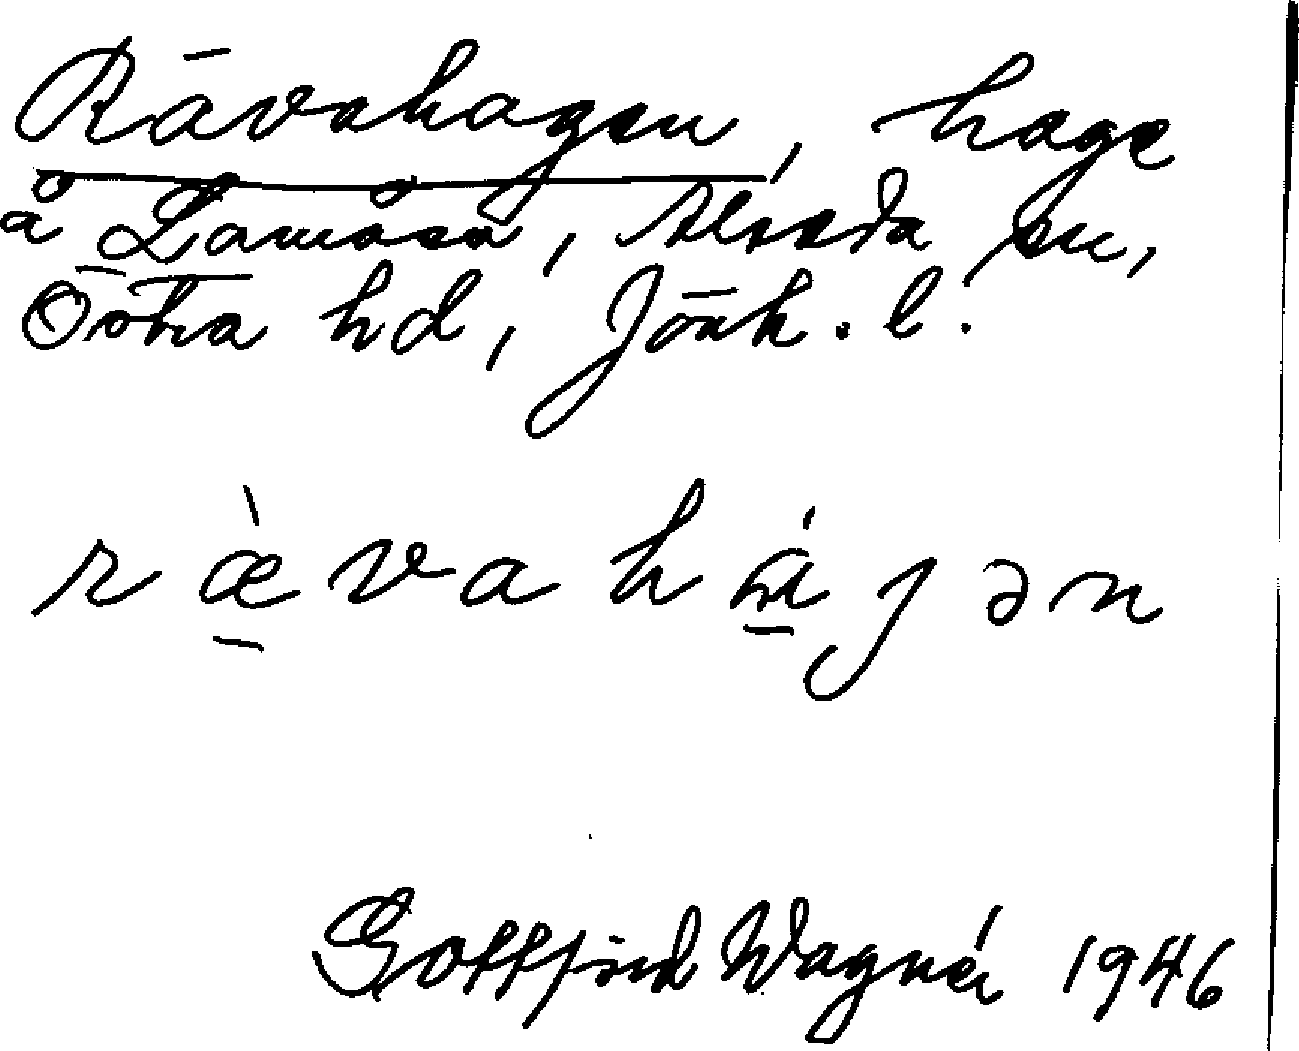 Rävahagen, hage
å Lamåsa, Alseda sn,
Östra hd, Jönk. l.
r æ̀ v a h ɑ́ j ə n
Gottfrid Wagnér 1946